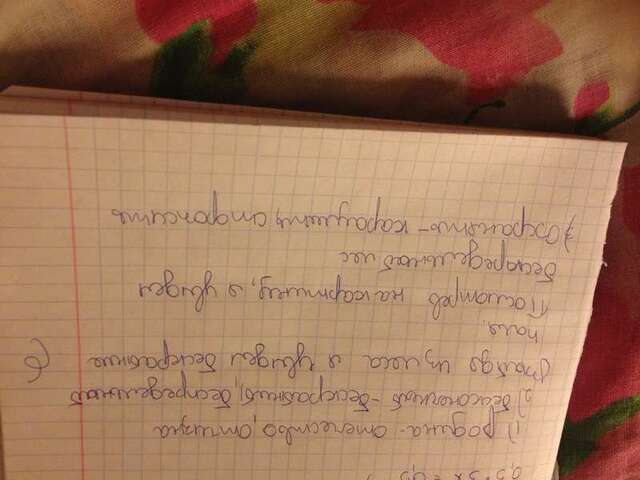 0,5 + 3x = 0,5
1) родина - отечество, отчизна
2) бесконечный - бескрайний, беспредельный
Выйдя из леса я увидел бескрайние
поля.
Посмотрев на картину, я увидел
беспредельный лес
3) Охранять - караулить, сторожить